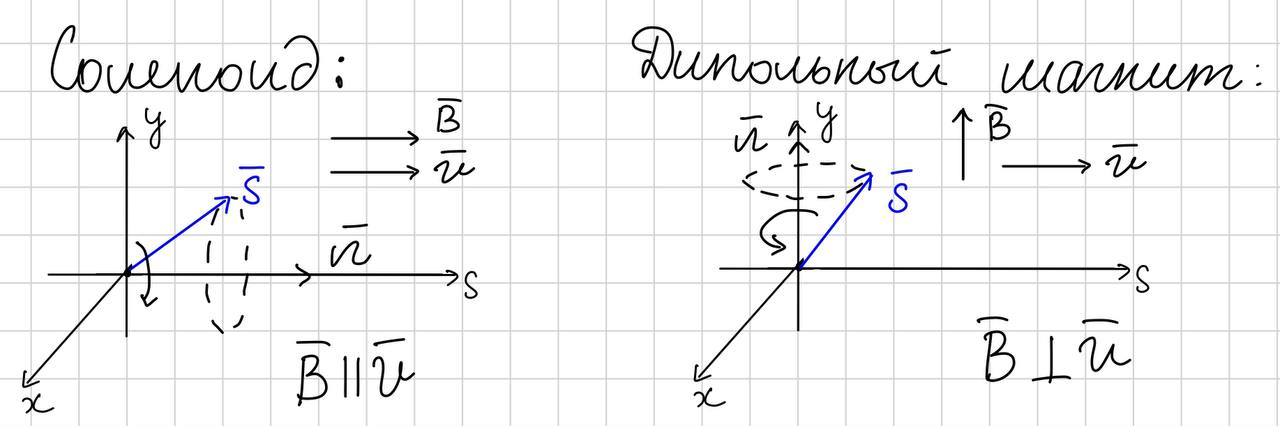 Соленоид:
y
B̅
v̅
S̅
n̅
s
B̅ || v̅
x
Дипольный магнит:
n̅
y
B̅
v̅
S̅
s
B̅ ⊥ v̅
x